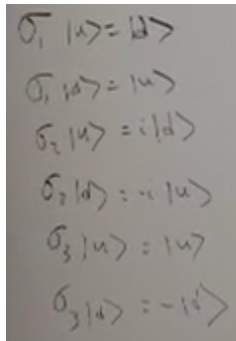 σ₁ |u⟩ = |d⟩
σ₁ |d⟩ = |u⟩
σ₂ |u⟩ = i|d⟩
σ₂ |d⟩ = -i |u⟩
σ₃ |u⟩ = |u⟩
σ₃ |d⟩ = -|d⟩